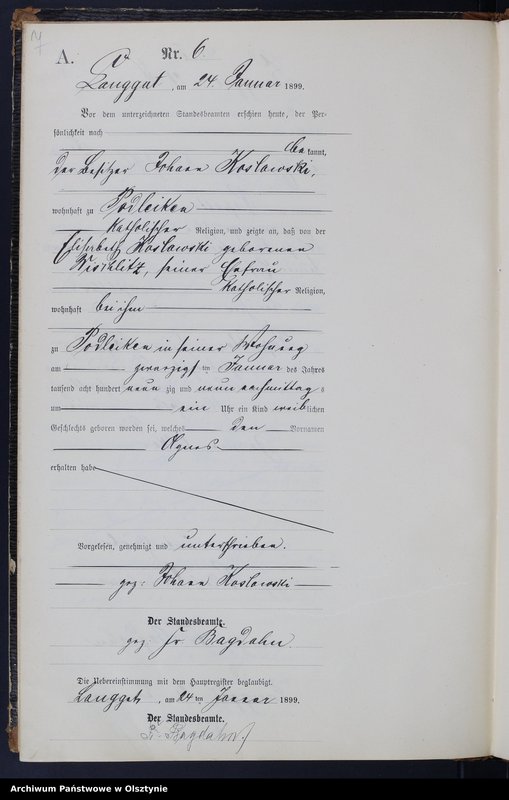 A.
Nr. 6.
Langgut, am 24. Januar 1899.
Vor dem unterzeichneten Standesbeamten erschien heute, der Per-
sönlichkeit nach
be kannt,
der Besitzer Johann Koslowski,
wohnhaft zu Podleiken
katholischer Religion, und zeigte an, daß von der
Elisabeth Koslowski geborenen
seiner Ehefrau
katholischer Religion,
wohnhaft bei ihm
zu Podleiken in seiner Wohnung
am zwanzigsten Januar des Jahres
tausend acht hundert neun zig und neun nachmittags
um ein Uhr ein Kind weiblichen
Geschlechts geboren worden sei, welches den Vornamen
Agnes
erhalten habe
Vorgelesen, genehmigt und unterschrieben.
gez: Johann Koslowski
Der Standesbeamte.
gez Fr. Bagdahn
Die Uebereinstimmung mit dem Hauptregister beglaubigt.
Langgut, am 24 ten Januar 1899.
Der Standesbeamte.
Fr. Bagdahn
Archiwum Państwowe w Olsztynie